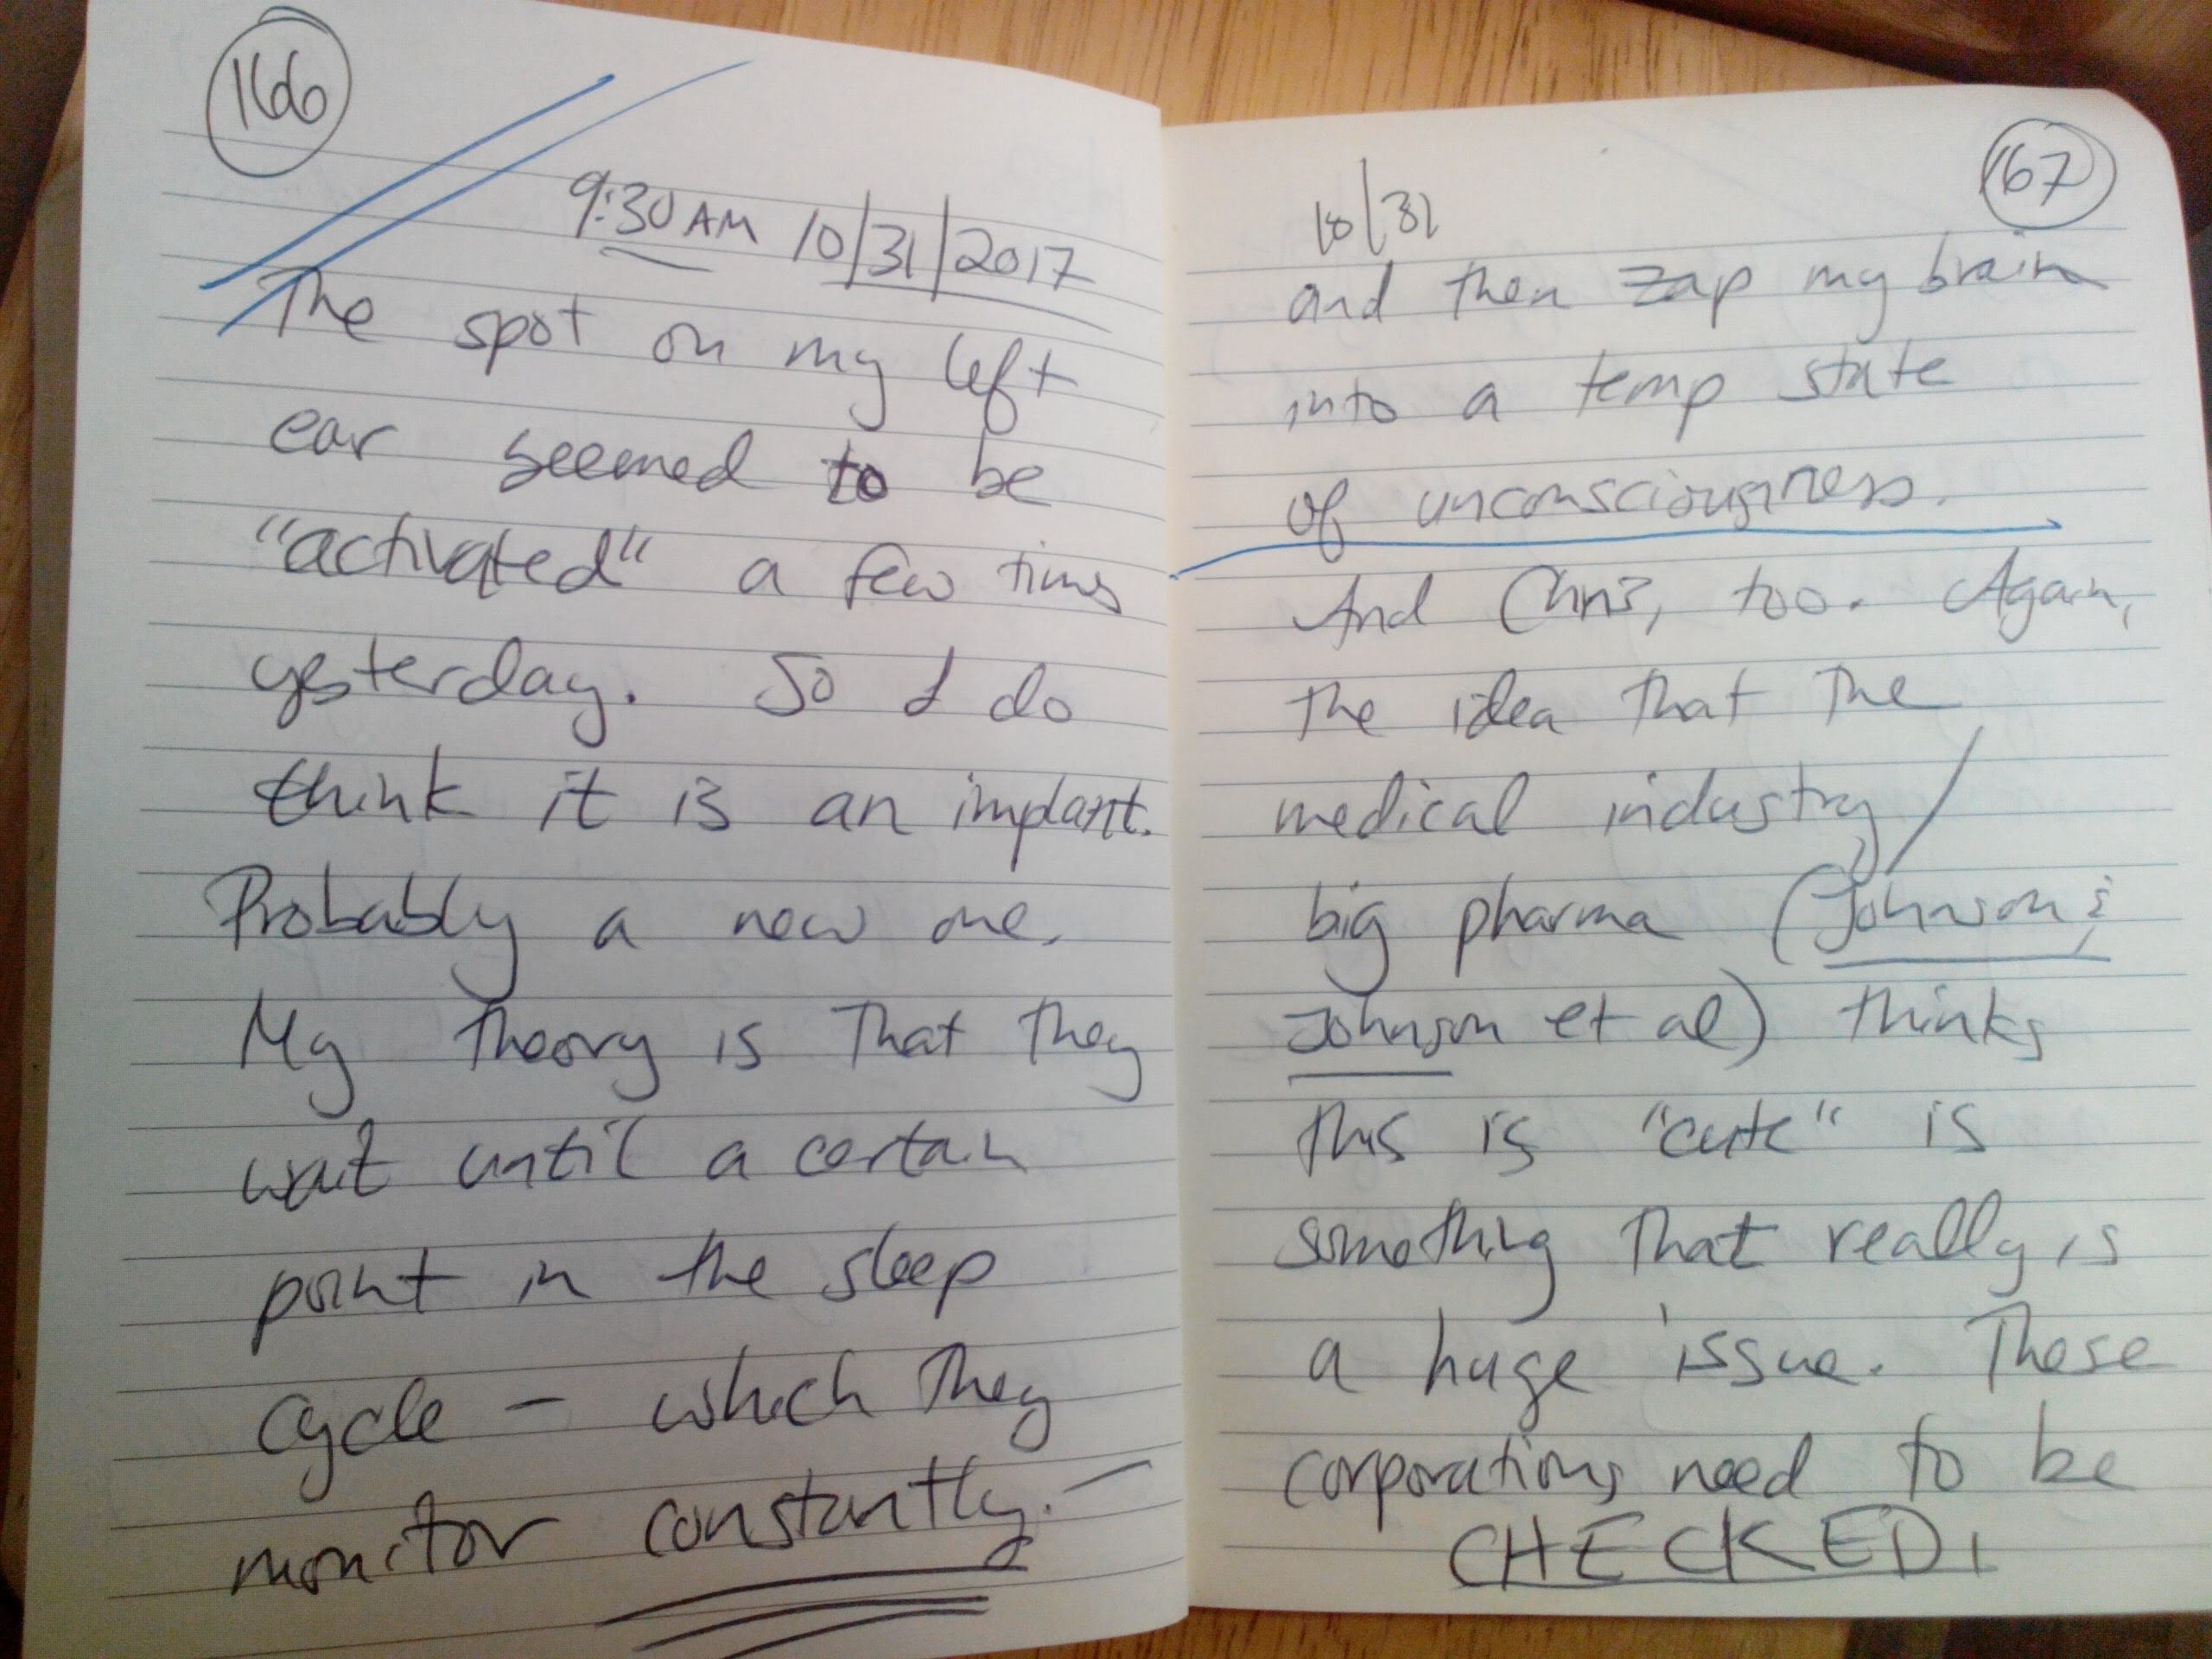 166
9:30 AM 10/31/2017
The spot on my left
ear seemed to be
"activated" a few times
yesterday. So I do
think it is an implant.
Probably a new one.
My theory is that they
wait until a certain
point in the sleep
cycle – which they
monitor constantly. –
167
10/31
and then zap my brain
into a temp state
of unconsciousness.
And Chris, too. Again,
the idea that the
medical industry/
big pharma (Johnson &
Johnson et al) thinks
this is "cute" is
something that really is
a huge issue. These
corporations need to be
CHECKED!